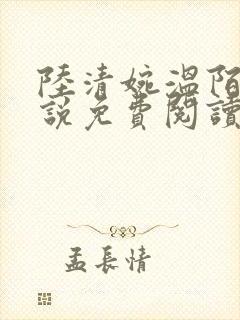 陸清婉溫陌
說免費閱讀
孟長情